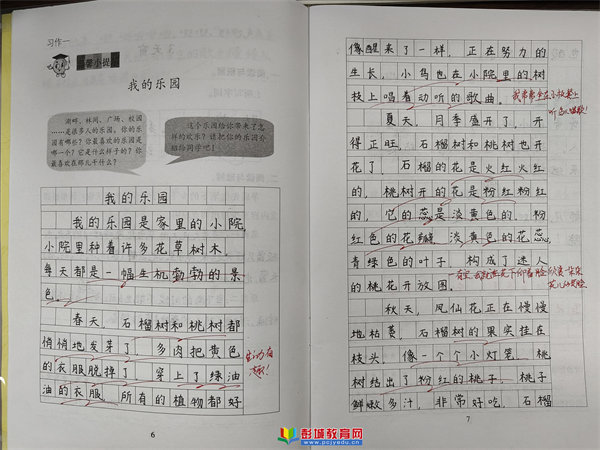 习作一
温馨小提
我的乐园
湖畔、林间、广场、校园
……是很多人的乐园。你的乐
园有哪些？你最喜欢的乐园是
哪一个？它是什么样子的？你
最喜欢在那儿干什么？
这个乐园给你带来了怎
样的欢乐？请把你的乐园介
绍给同学吧！
我的乐园
我的乐园是家里的小院,
小院里种着许多花草树木,
每天都是一幅生机勃勃的景
色。
春天，石榴树和桃树都
悄悄地发芽了，多肉把黄色
的衣服脱掉了，穿上了绿油
油的衣服，所有的植物都好
生动有趣！
6
像醒来了一样，正在努力的
生长，小鸟也在小院里的树
枝上唱着动听的歌曲。
夏天，月季盛开了，开
得正旺，石榴树和桃树也开
花了，石榴的花是火红火红
的，桃树开的花是粉红粉红
的，它的蕊是淡黄色的，粉
红色的花瓣，淡黄色的花蕊,
青绿色的叶子，构成了迷人
的桃花开放图。
秋天，凤仙花正在慢慢
地枯萎，石榴树的果实挂在
枝头，像一个个小灯笼，桃
树结出了粉红的桃子，桃子
鲜嫩多汁，非常好吃，石榴
7
彭城教育网
www.pcjyedu.com